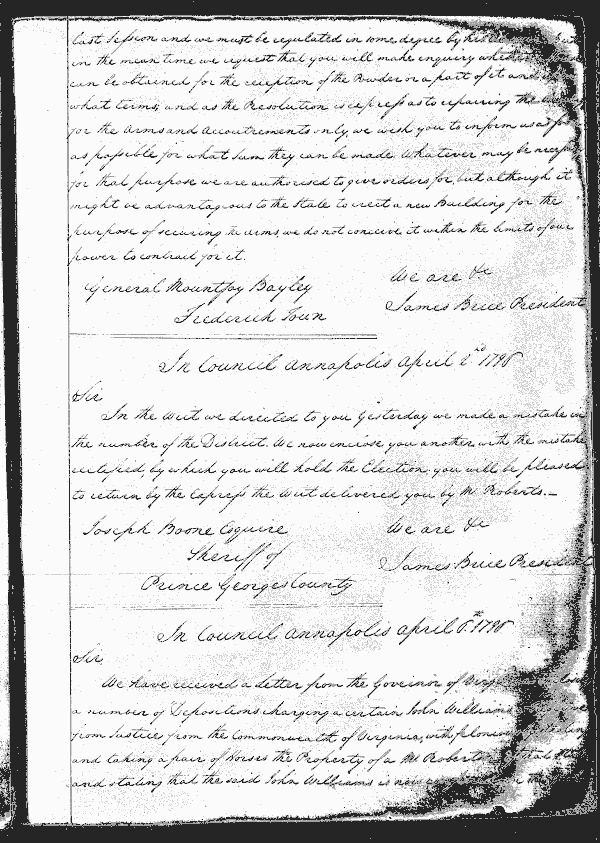 last Session and we must be regulated in some degree by his
in the mean time we request that you will make inquiry whether
can be obtained for the reception of the Powder or a part of it and
what terms; and as the Resolution is express as to repairing the
for the Arms and Accoutrements only, we wish you to inform us as
as possible for what Sum they can be made. Whatever may be
for that purpose we are authorised to give orders for, but although it
might be advantageous to the State to erect a new Building for the
purpose of securing the arms, we do not conceive it within the limits of our
power to contract for it.
We are &c
General Mountjoy Bayley
James Brice President
Frederick Town
In Council Annapolis April 2nd 1796
Sir
In the Writ we directed to you Yesterday we made a mistake in
the number of the District. We now enclose you another with the mistake
rectified, by which you will hold the Election, you will be pleased
to return by the Express the Writ delivered you by Mr Roberts.
Joseph Boone Esquire
We are &c
Sheriff of
James Brice President
Prince Georges County
In Council Annapolis April 6th 1796
Sir
We have received a Letter from the Governor of
a number of Depositions charging a certain John Williams
from Justice from the Commonwealth of Virginia, with feloniously
and taking a pair of Horses the Property of a Mr Roberts
and stating that the said John Williams is now